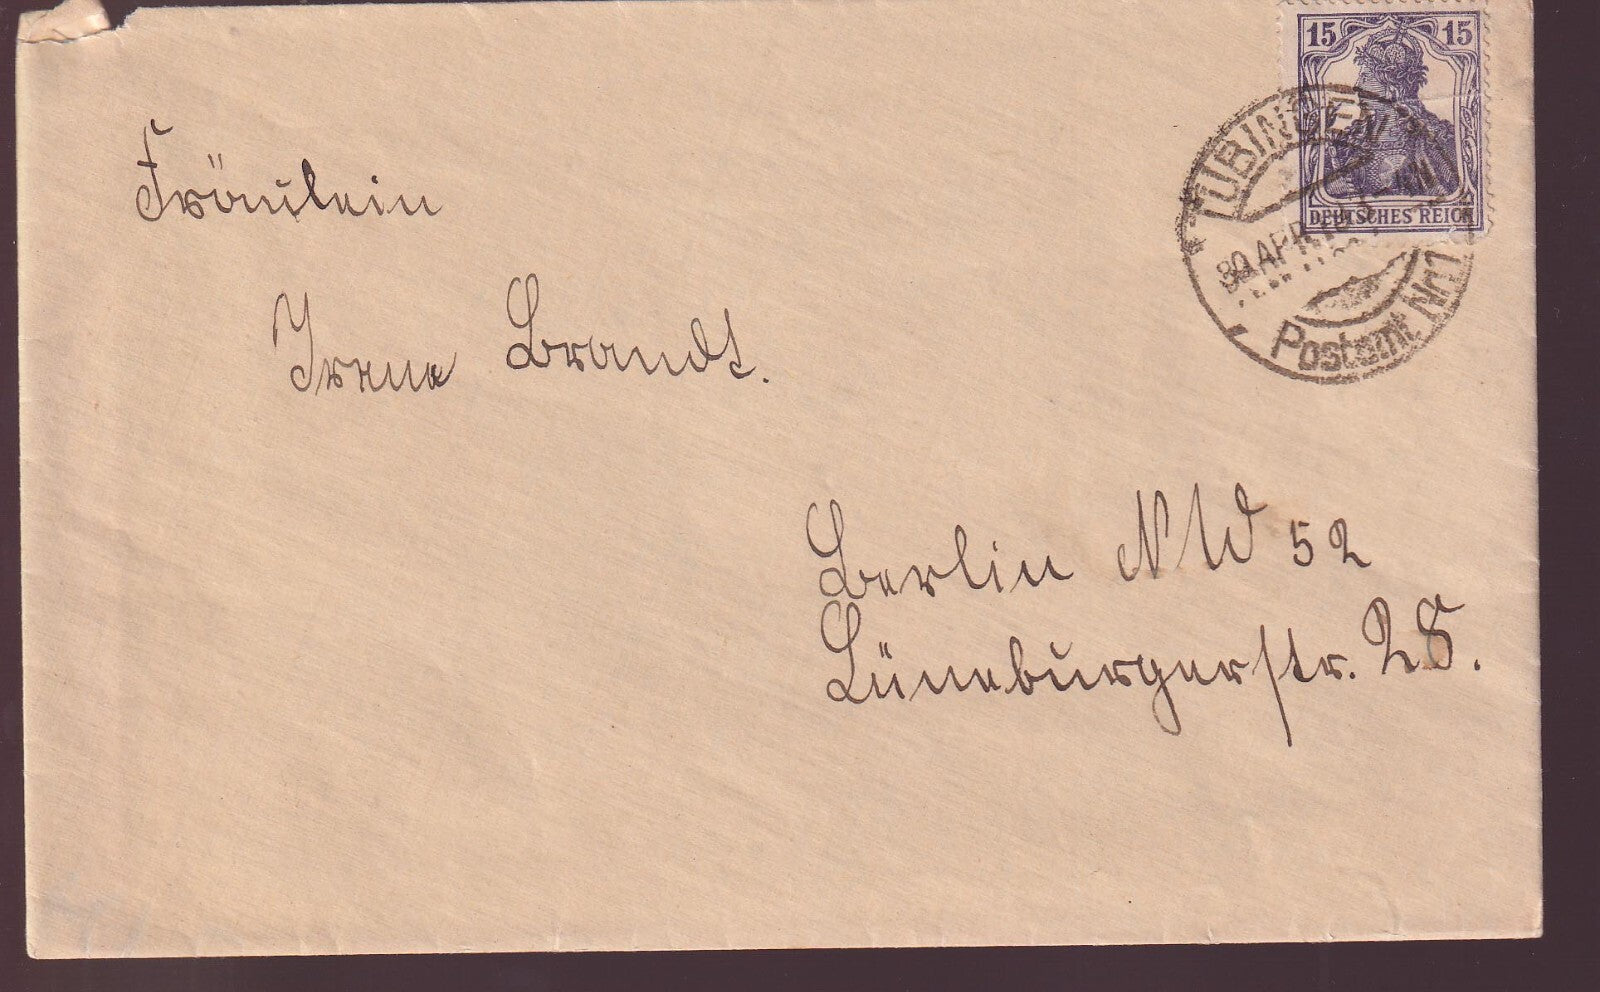 15 15
DEUTSCHES REICH
TÜBINGEN
30 APR 18
Postamt No 1
Fräulein
Irene Brandt.
Berlin NW 52
Lüneburgerstr. 28.